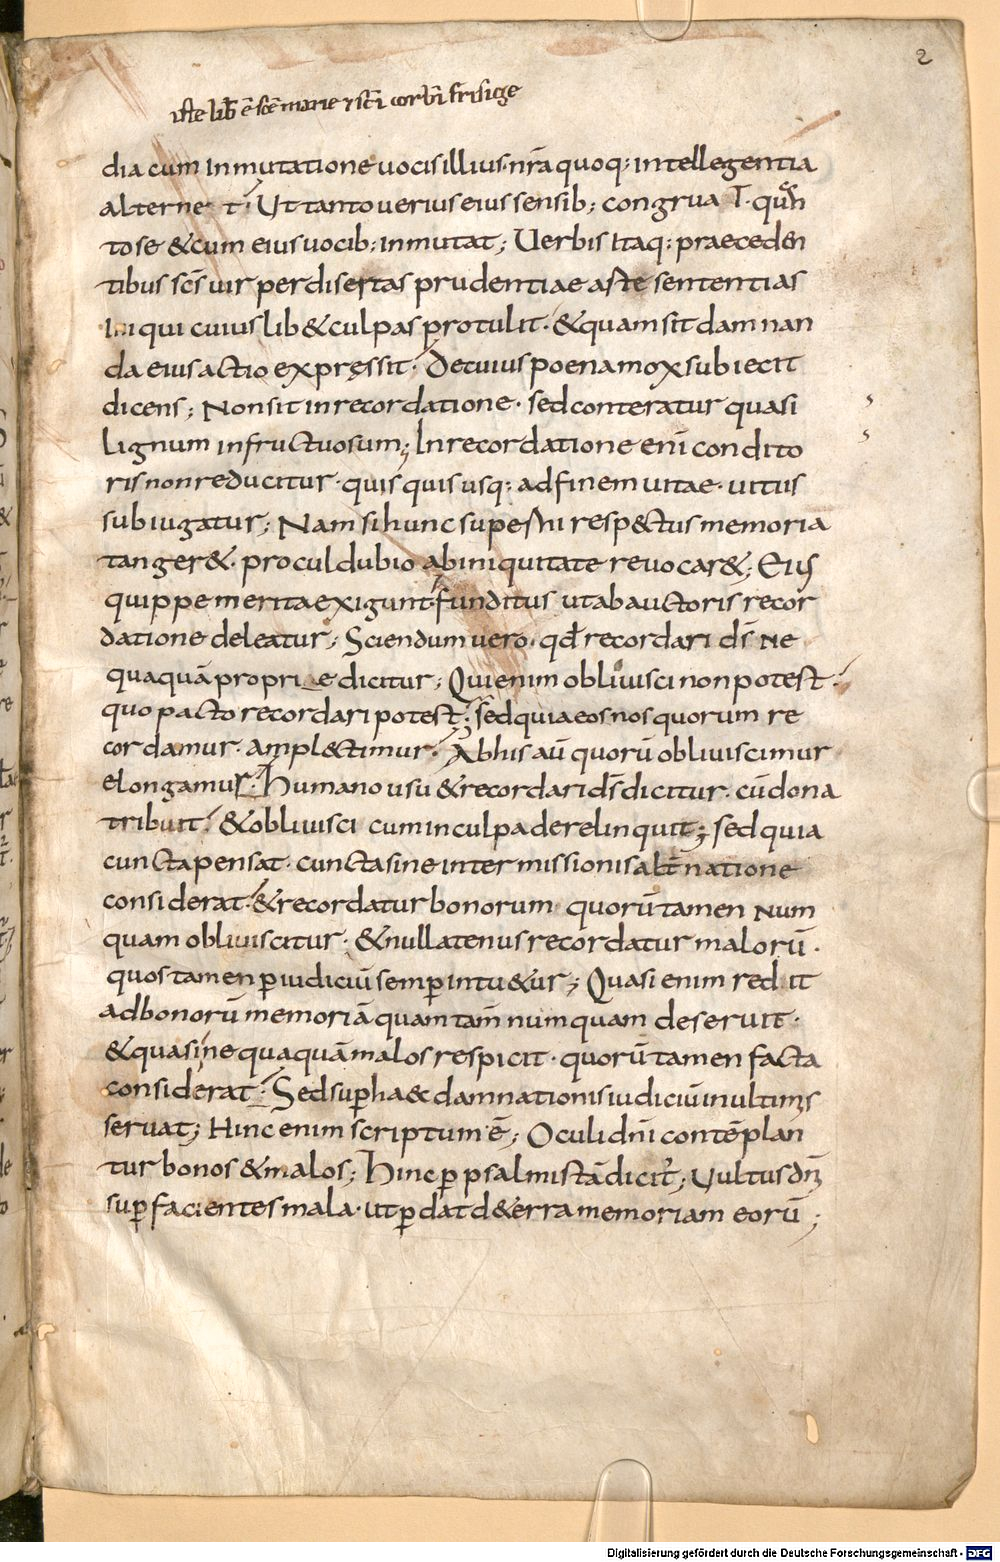 2
iste lib ē scē marie ⁊ scī corbī frisige
dia cum Inmutatione uocis illius nr̄a quoq; intellegentia
alterne t' Ut tanto uerius eius sensib; congrua
to se & cum eius uocib; inmutat; Uerbis Itaq; praeceden
tibus scs̄ uir per disertas prudentiae aste sententias
Iniqui cuius lib& culpas protulit · & quam sit damnan
da eius actio expręssit · De cuius poena mox subiecit
dicens; Non sit in recordatione · sed conteratur quasi
lignum infructuosum; In recordatione eni̅ condito
ris non reducitur · quisquis usq; ad finem uitae · uitiis
subiugatur; Nam si hunc superni resp&tus memoria
tanger& · procul dubio ab iniquitate reuocar&; Eius
quippe merita exigunt funditus ut ab auctoris recor
datione deleatur; Sciendum uero · qd̄ recordari ds̄ Ne
quaquā propriae dicitur; Qui enim obliuisci non potest ·
quo pacto recordari potest; sed quia eos nos quorum re
cordamur · ampl&timur · Ab his au̅ quorū obliuiscimur
elongamur · Humano usu & recordari ds̄ dicitur · cū dona
tribuit · & obliuisci cum in culpa derelinquit; sed quia
cuncta pensat · cuncta sine intermissionis alt̄natione
considerat · & recordatur bonorum quorū tamen Num
quam obliuiscitur · & nullatenus recordatur malorū ·
quos tamen p̱ iudiciū semp̱ intu&ur; Quasi enim redit
ad bonorū memoriā quam tam̄ numquam deseruit ·
& quasi nequaquā malos respicit · quorū tamen facta
considerat · Sed sup̱ ha& damnationis iudiciū in ultimis
seruat; Hinc enim scriptum ē; Oculi dn̄i contēplan
tur bonos & malos; Hinc p̱ psalmistā dicit̄; Uultus dn̄i
sup̱ facientes mala · ut p̱dat d& erra memoriam eorū;
Digitalisierung gefördert durch die Deutsche Forschungsgemeinschaft - DFG